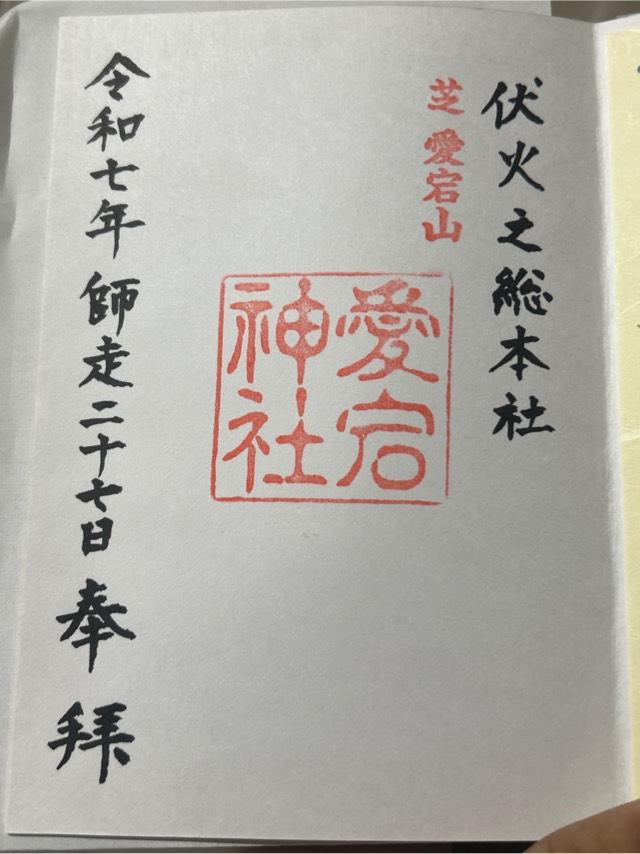 伏火之総本社
芝 愛宕山
愛宕
神社
令和七年 師走二十七日 奉拝